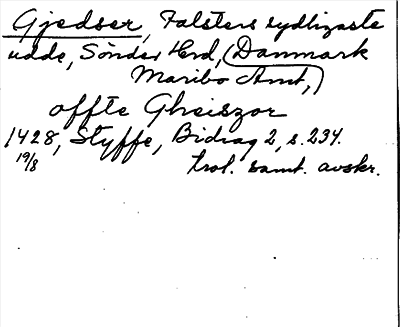 Gjedser, Falsters sydligaste
udde, Sönder Hrd, (Danmark
Maribo Amt,)
offte Gheiszor
1428, Styffe, Bidrag 2, s. 234.
19/8 trol. samt. avskr.